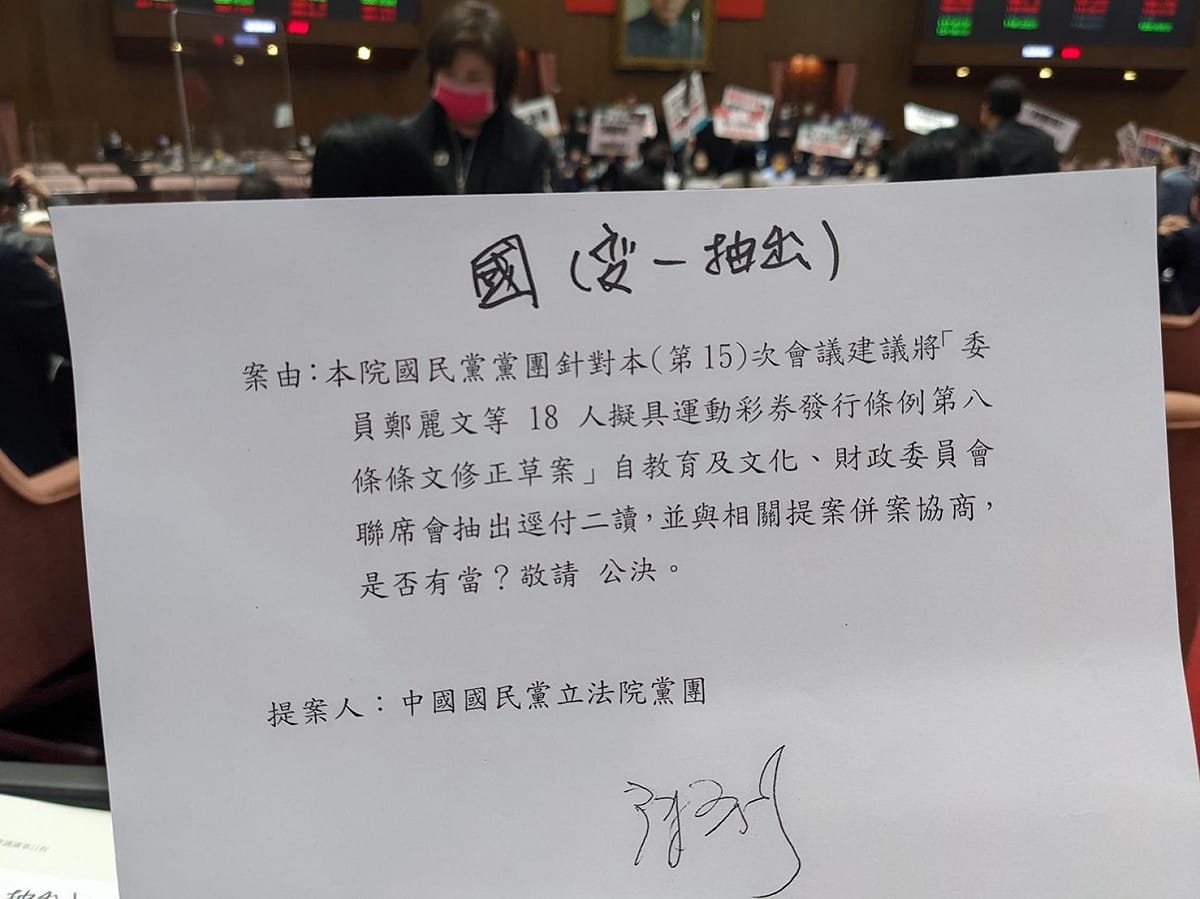 國(变一抽出)
案由：本院國民黨黨團針對本(第15)次會議建議將「委
員鄭麗文等 18 人擬具運動彩券發行條例第八
條條文修正草案」自教育及文化、財政委員會
聯席會抽出逕付二讀，並與相關提案併案協商，
是否有當？敬請 公決。
提案人：中國國民黨立法院黨團